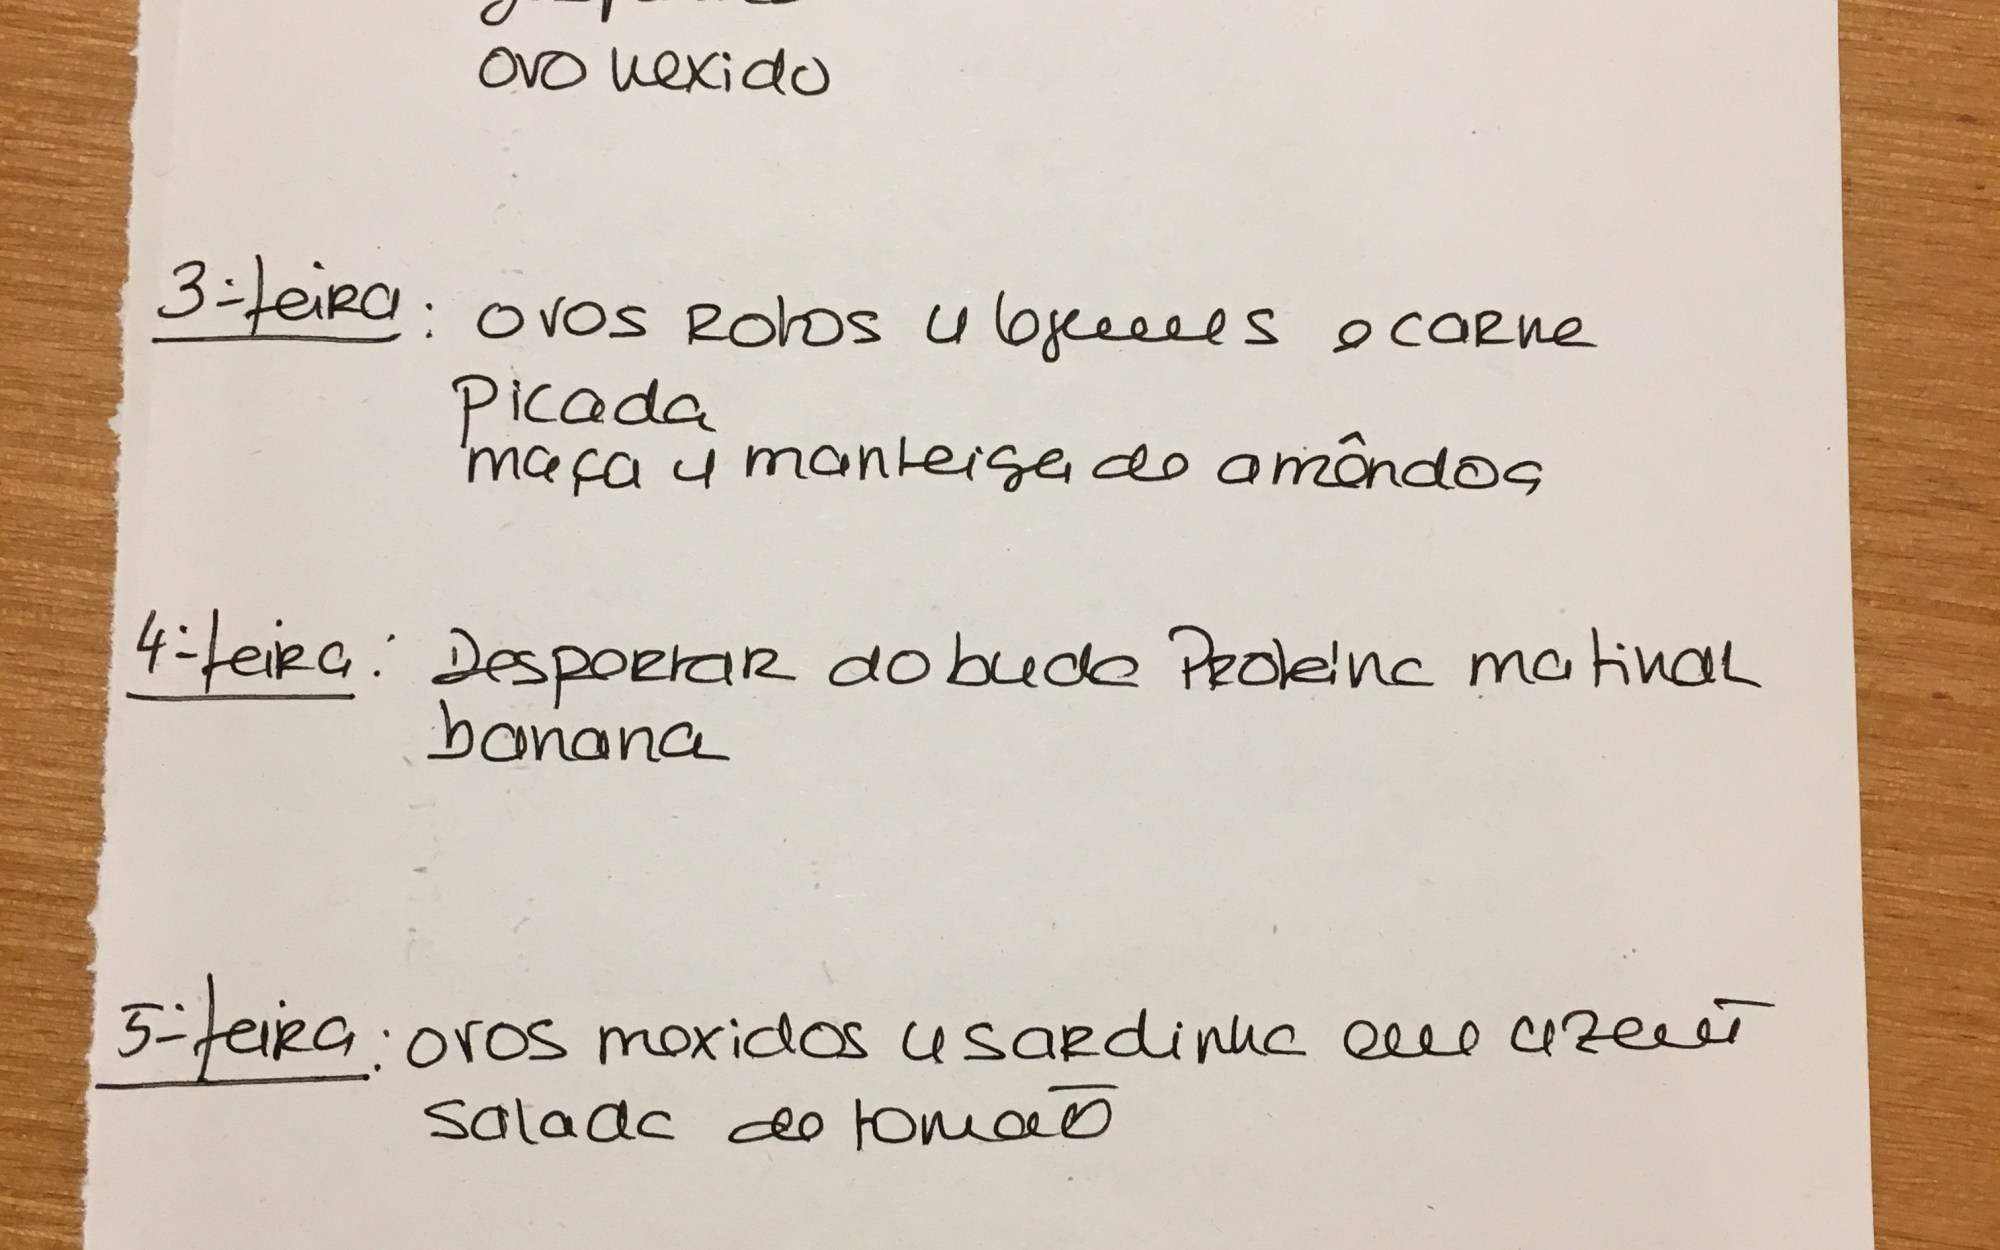 ovo mexido
3ª-feira: ovos Rotos c/ legumes e carne
picada
maçã c/ manteiga de amêndoa
4ª-feira: Despertar do buda Proteína matinal
banana
5ª-feira: ovos mexidos c/ sardinha em azeite
salada de tomate